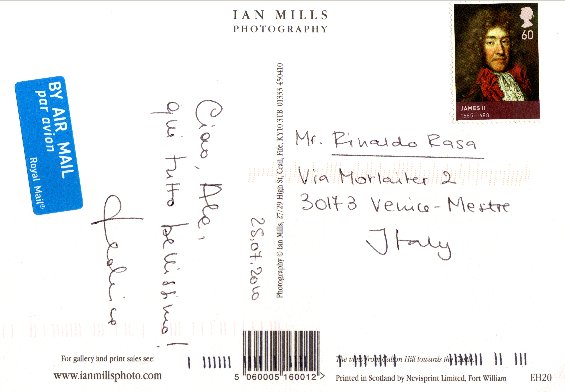 IAN MILLS
PHOTOGRAPHY
BY AIR MAIL
par avion
Royal Mail®
60
JAMES II
Ciao, Ale,
qui tutto bellissimo!
28.07.2010
Photography © Ian Mills, 27-29 High St, Crail, Fife, KY10 3TB 01333 450410
Mr. Rinaldo Rasa
Via Morlaiter 2
30173 Venice-Mestre
Italy
For gallery and print sales see:
www.ianmillsphoto.com
5 060005 160012
The view from Calton Hill towards the
Printed in Scotland by Nevisprint Limited, Fort William
EH20